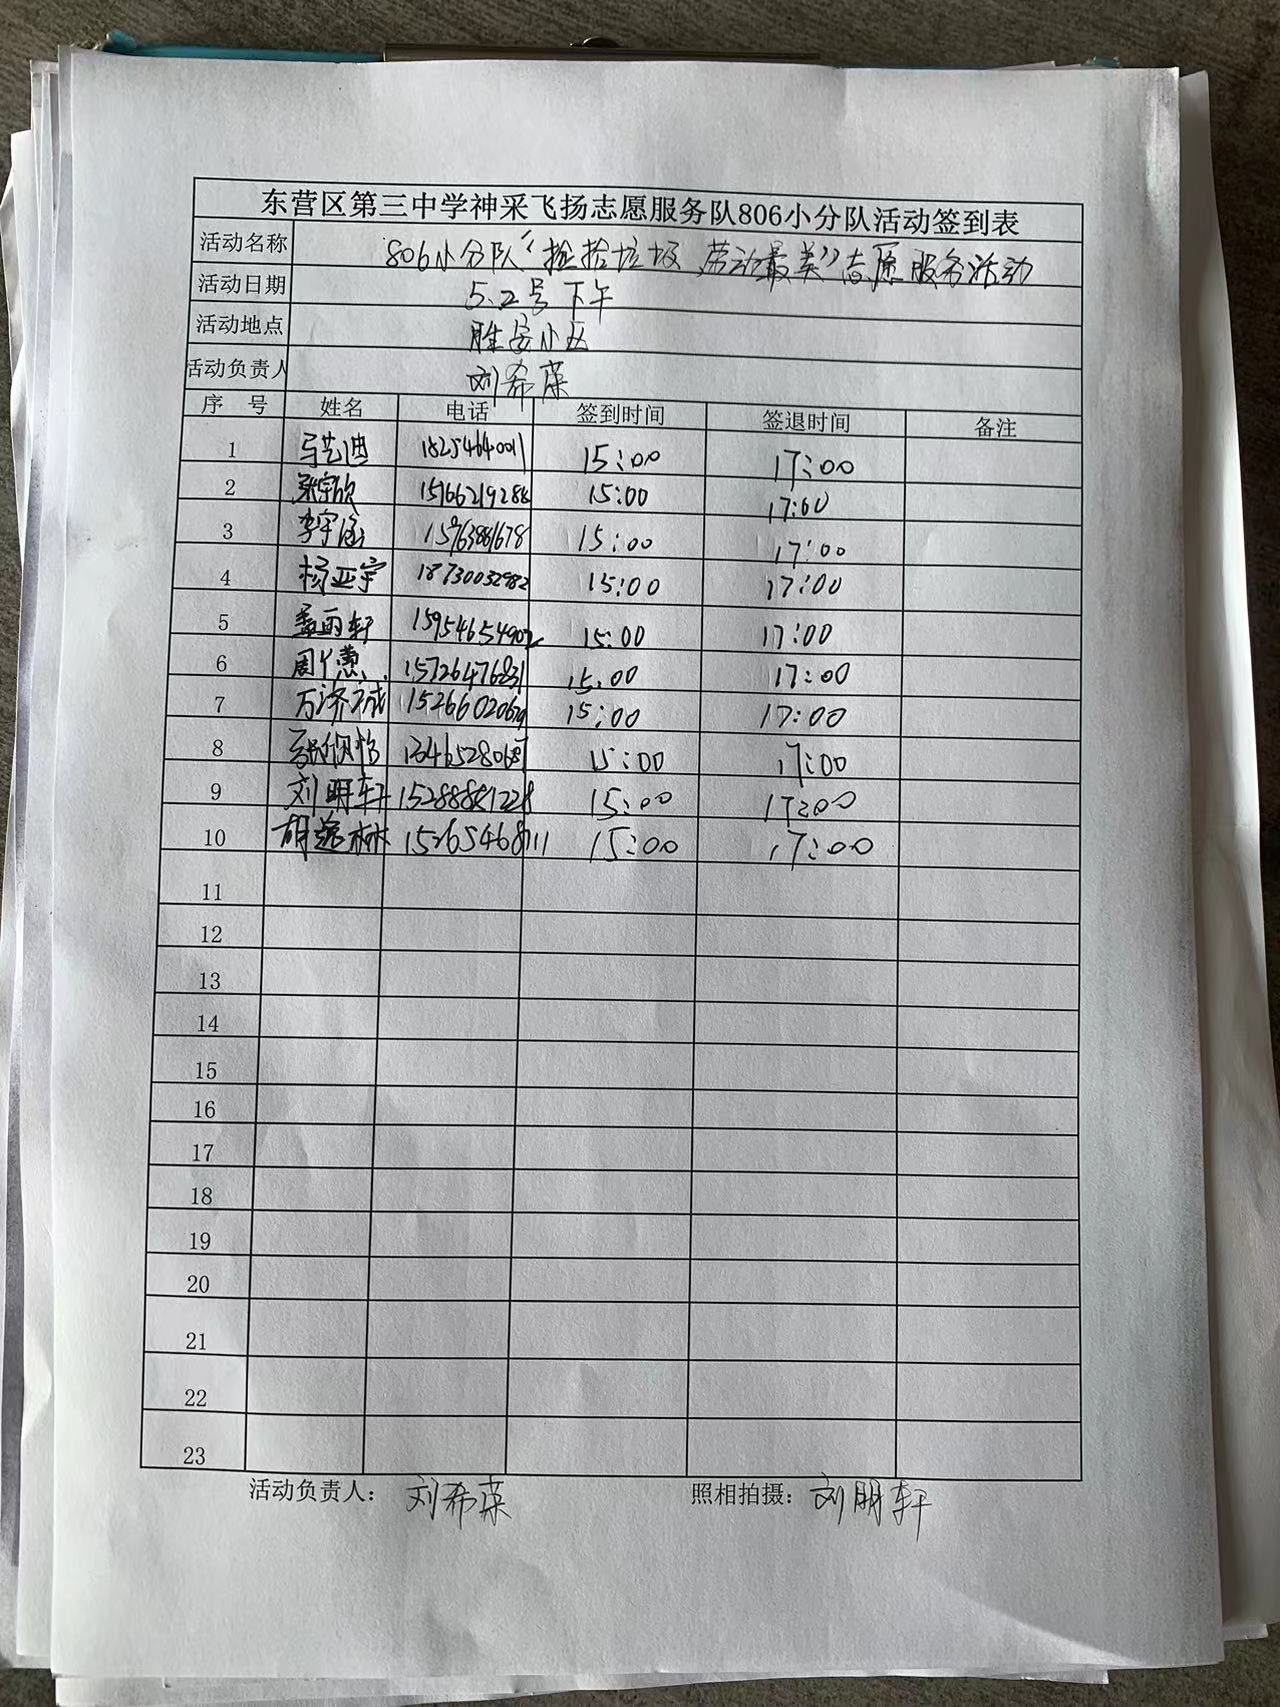 东营区第三中学神采飞扬志愿服务队806小分队活动签到表
活动名称 806小分队“捡捡垃圾,劳动最美”志愿服务活动
活动日期 5.2号下午
活动地点 胜安小区
活动负责人 刘希荣
序 号 姓名 电话 签到时间 签退时间 备注
1 马艺迪 18254640011 15:00 17:00
2 张宇欣 15166219288 15:00 17:00
3 李宇涵 15:00 17:00
4 杨亚宇 18730032982 15:00 17:00
5 孟雨轩 15954654902 15:00 17:00
6 15726476831 15:00 17:00
7 万济诚 15:00 17:00
8 15:00 17:00
9 刘明轩 15288881228 15:00 17:00
10 胡逸林 15265468111 15:00 17:00
11
12
13
14
15
16
17
18
19
20
21
22
23
活动负责人: 刘希荣 照相拍摄: 刘明轩